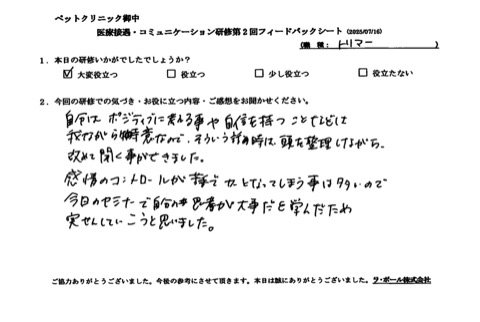 ペットクリニック御中
医療接遇・コミュニケーション研修第2回フィードバックシート (2025/07/16)
(職 種: トリマー)
1. 本日の研修いかがでしたでしょうか?
☑ 大変役立つ □ 役立つ □ 少し役立つ □ 役立たない
2. 今回の研修での気づき・お役に立つ内容・ご感想をお聞かせください。
自分は ポジティブに考える事や自信を持つ ことなどは
我ながら得意なので、そういう 時は 頭を整理しながら、
改めて聞く事ができました。
感情のコントロールが苦手で となってしまう事は多いので
今日のセミナーで自分の思考が大事だと学んだため
実せんしていこうと思いました。
ご協力ありがとうございました。今後の参考にさせて頂きます。本日は誠にありがとうございました。ラ・ポール株式会社